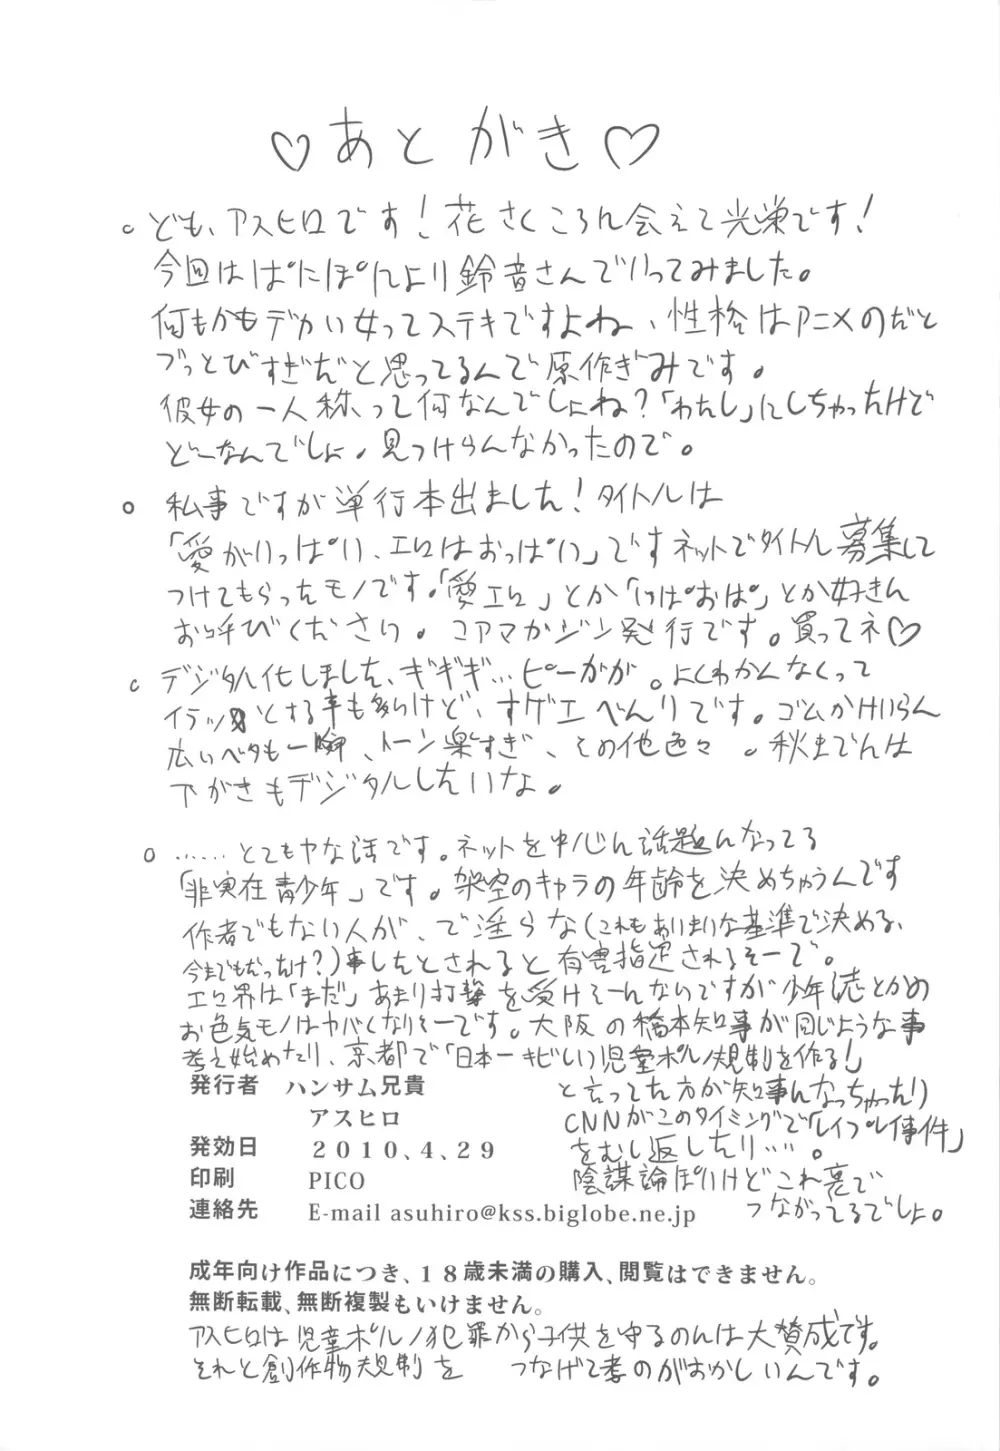 ♡あとがき♡
○ ども、アスヒロです!花さくころに会えて光栄です!
今回はぱにぽにより鈴音さんでいってみました。
何もかもデカい女ってステキですよね、性格はアニメのだと
ブっとびすぎだと思ってるんで原作ぎみです。
彼女の一人称って何なんでしょね?「わたし」にしちゃったけど
どーなんでしょ、見つけらんなかったので。
○ 私事ですが単行本出ました!タイトルは
「愛がいっぱい、エロはおっぱい」ですネットでタイトル募集して
つけてもらったモノです。「愛エロ」とか「いぱおぱ」とか好きに
お呼びください。コアマガジン発行です。買ってネ♡
○ デジタル化しました、ギギギ…ピーガガ。よくわかんなくって
イラッとする事も多いけど、すゲエべんりです。ゴムかけいらん
広いベタも一瞬、トーン楽すぎ、その他色々。秋までんは
下がきもデジタルしたいな。
○ ……とてもヤな話です。ネットを中心に話題になってる
「非実在青少年」です。架空のキャラの年齢を決めちゃうんです
作者でもない人が、で淫らな(これもあいまいな基準で決める、
今までもだっけ?)事したとされると有害指定されるそーで。
エロ界は「まだ」あまり打撃を受けそーんないですが少年誌とかの
お色気モノはヤバくなりそーです。大阪の橋本知事が同じような事
考え始めたり、京都で「日本一キビしい児童ポルノ規制を作る!」
と言ってた方が知事になっちゃったり
CNNがこのタイミングで「レイプレイ事件」
をむし返したり…。
陰謀論ぽいけどこれ裏で
つながってるでしょ。
発行者 ハンサム兄貴
アスヒロ
発効日 2010,4,29
印刷 PICO
連絡先 E-mail asuhiro@kss.biglobe.ne.jp
成年向け作品につき、18歳未満の購入、閲覧はできません。
無断転載、無断複製もいけません。
アスヒロは児童ポルノ犯罪から子供を守るのには大賛成です。
それと創作物規制を つなげて考のがおかしいんです。